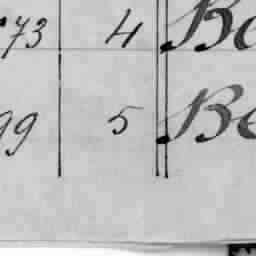 73 4 Be
99 5 Be